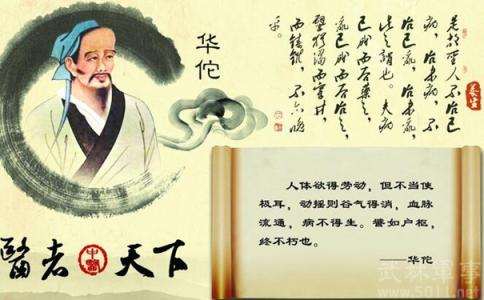 是故聖人不治已
病，治未病，不
治已亂，治未亂，
此之謂也。夫病
已成而后藥之，
亂已成而后治之，
譬猶渴而穿井，
而鑄錐，不亦晚
乎。
養生
华佗
人体欲得劳动，但不当使
极耳，动摇则谷气得消，血脉
流通，病不得生。譬如户枢，
终不朽也。
——华佗
醫者中醫天下
武林軍事
www.5011.net